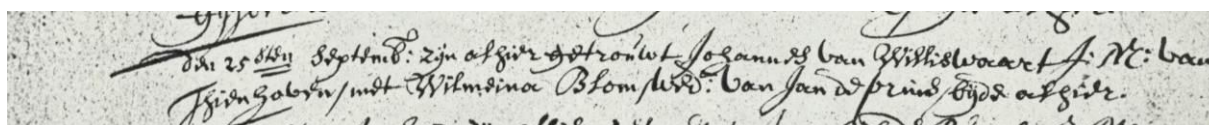 den 25 sten Septemb: zijn alhier getrouwt Johannes van Williswaart J: M: van
Thienhoven / met Wilmeina Blom / wed: van Jan de prins / byde alhier.